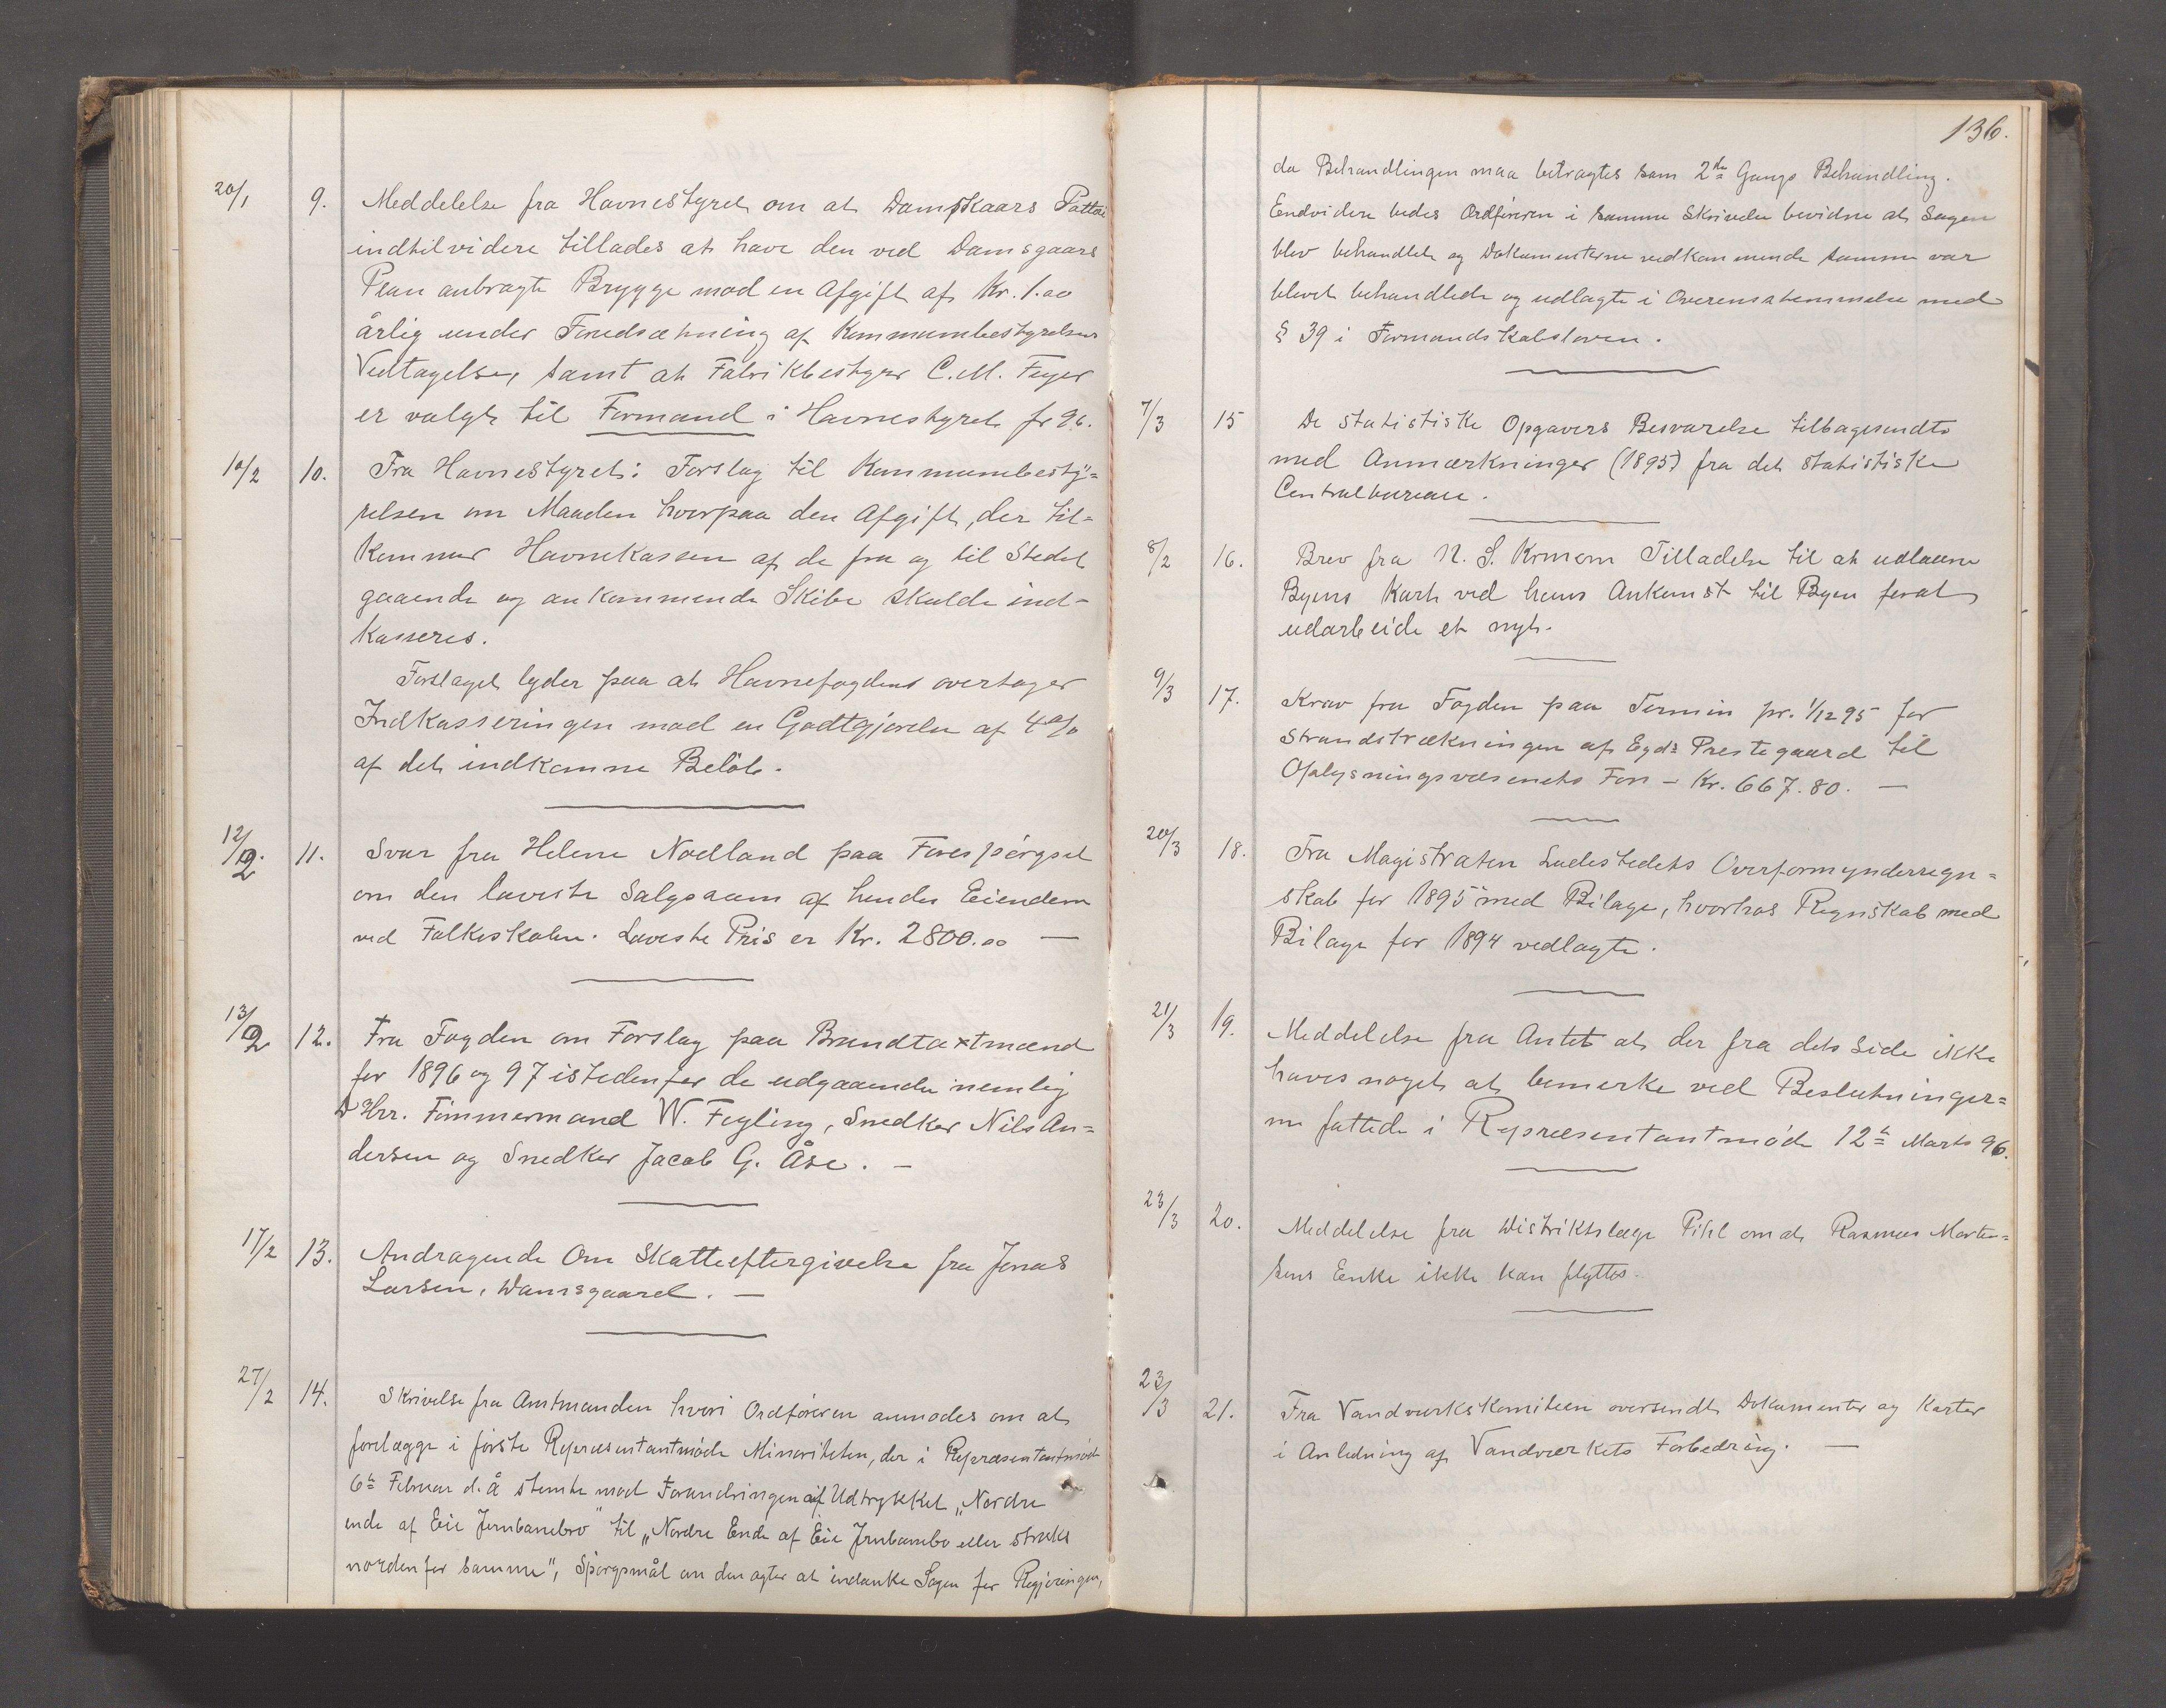 20/1 9. Meddelelse fra Havnestyret om at Damskaars
indtilvidere tillades at have den ved Damsgaars
Plan anbragte Brygge mod en Afgift af Kr. 1.00
årlig under Forudsætning af Kommunbestyrelsens
Vedtagelse, samt at Fabrikbestyrer C. M. Feyer
er valgt til Formand i Havnestyret for 96.
10/2 10. Fra Havnestyret: Forslag til Kommunbesty=
relsen om Maaden hvorpaa den Afgift, der til=
kommer Havnekassen af de fra og til Stedet
gaaende og ankommende Skibe skulde ind-
kasseres.
Forslaget lyder paa at Havnefogden overtager
Indkasseringen mod en Godtgjørelse af 4 %
af det indkomne Beløb.
12/2 11. Svar fra Helene Nodland paa Forespørgsel
om den laveste Salgssum af hendes Eiendom
ved Folkeskolen. Laveste Pris er Kr. 2800.00 —
13/2 12. Fra Fogden om Forslag paa Brandtaxtmænd
for 1896 og 97 istedenfor de udgaaende nemlig
D'Hrr. Timmermand W. Fegling, Snedker Nils An=
dersen og Snedker Jacob G. Åse. —
17/2 13. Andragende Om Skatteeftergivelse fra Jonas
Larsen, Damsgaard. —
27/2 14. Skrivelse fra Amtmanden hvori Ordføreren anmodes om at
forelægge i første Repræsentantmøde Minoriteten, der i Repræsentantmøde
6te Februar d. å stemte mod Forandringen af Udtrykket „Nordre
ende af Eie Jernbanebro" til „Nordre Ende af Eie Jernbanebro eller straks
nordenfor samme", Spørgsmål om den agter at indanke Sagen for Regjeringen,
136.
da Behandlingen maa betragtes som 2den Gangs Behandling.
Endvidere bedes Ordføreren i samme Skrivelse bevidne at Sagen
blev behandlet og Dokumenterne vedkommende samme var
blevet behandlede og udlagte i Overensstemmelse med
§ 39 i Formandskabsloven.
7/3 15 De statistiske Opgavers Besvarelse tilbagesendte
med Anmærkninger (1895) fra det statistiske
Centralbureau.
8/2 16. Brev fra N. S. Krmom Tilladelse til at udlaane
Byens Kart ved hans Ankomst til Byen forat
udarbeide et nyt.
9/3 17. Krav fra Fogden paa Termin pr. 1/12 95 for
Strandstrækningen af Egds Prestegaard til
Oplysningsvæsenets Fon — Kr. 667.80. —
20/3 18. Fra Magistraten Ladestedets Overformynderregn=
skab for 1895 med Bilage, hvorhos Regnskab med
Bilage for 1894 vedlagte.
21/3 19. Meddelelse fra Amtet at der fra dets side ikke
haves noget at bemerke ved Beslutninger=
ne fattede i Repræsentantmøde 12te Marts 96.
23/3 20. Meddelelse fra Distriktslæge Pihl om at Rasmus Morten=
sens Enke ikke kan flyttes.
23/3 21. Fra Vandværkskomiteen oversendt Dokumenter og Karter
i Anledning af Vandværkets Forbedring. —